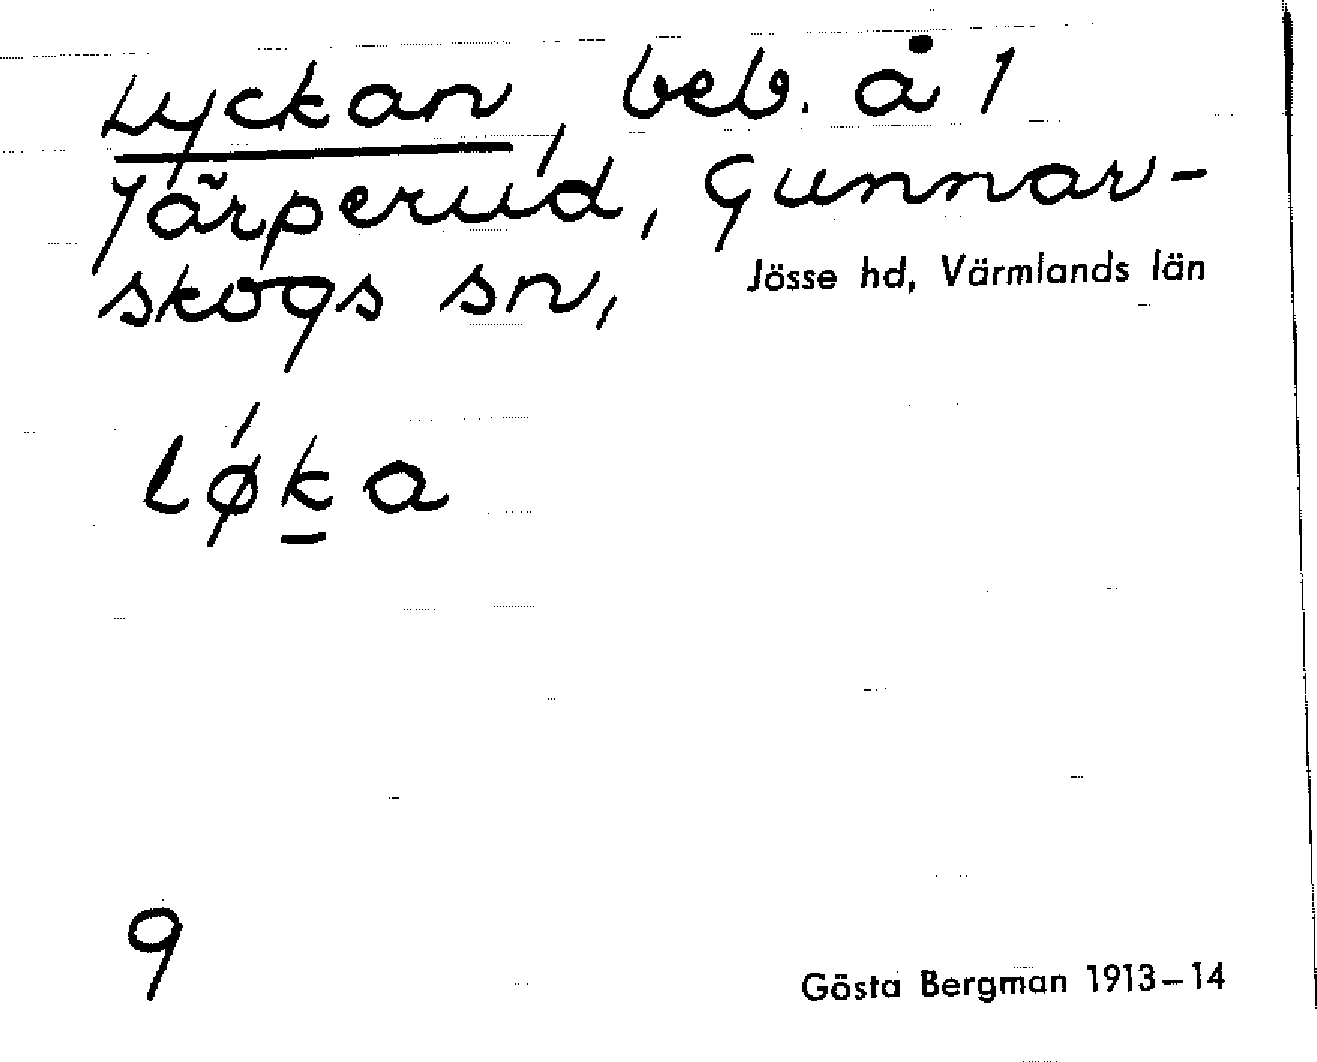 Lyckan, beb. å 1
Järperud, Gunnar-
skogs sn, Jösse hd, Värmlands län
løka
9
Gösta Bergman 1913–14